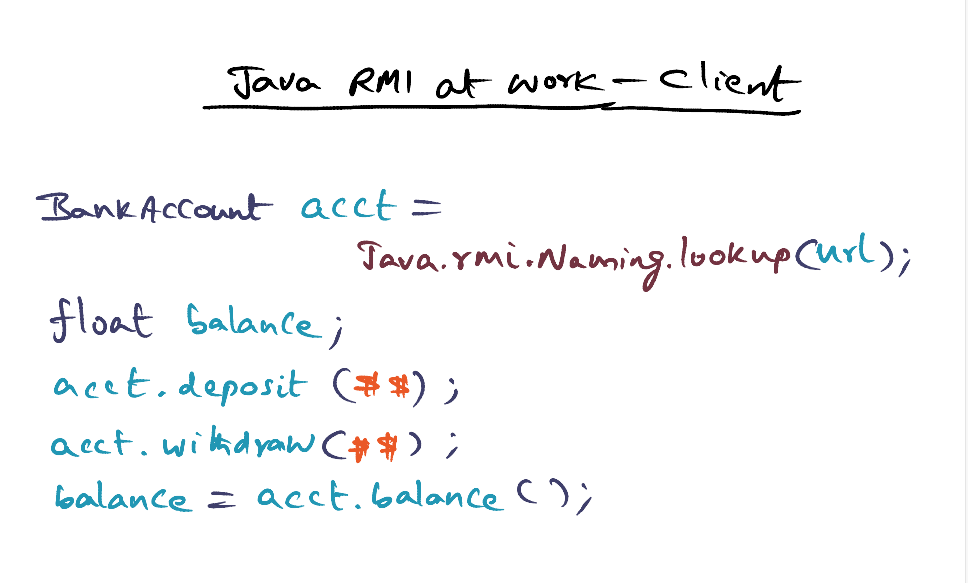 Java RMI at work - Client
BankAccount acct =
Java.rmi.Naming.lookup(url);
float balance;
acct.deposit (##);
acct.withdraw(##);
balance = acct.balance ();